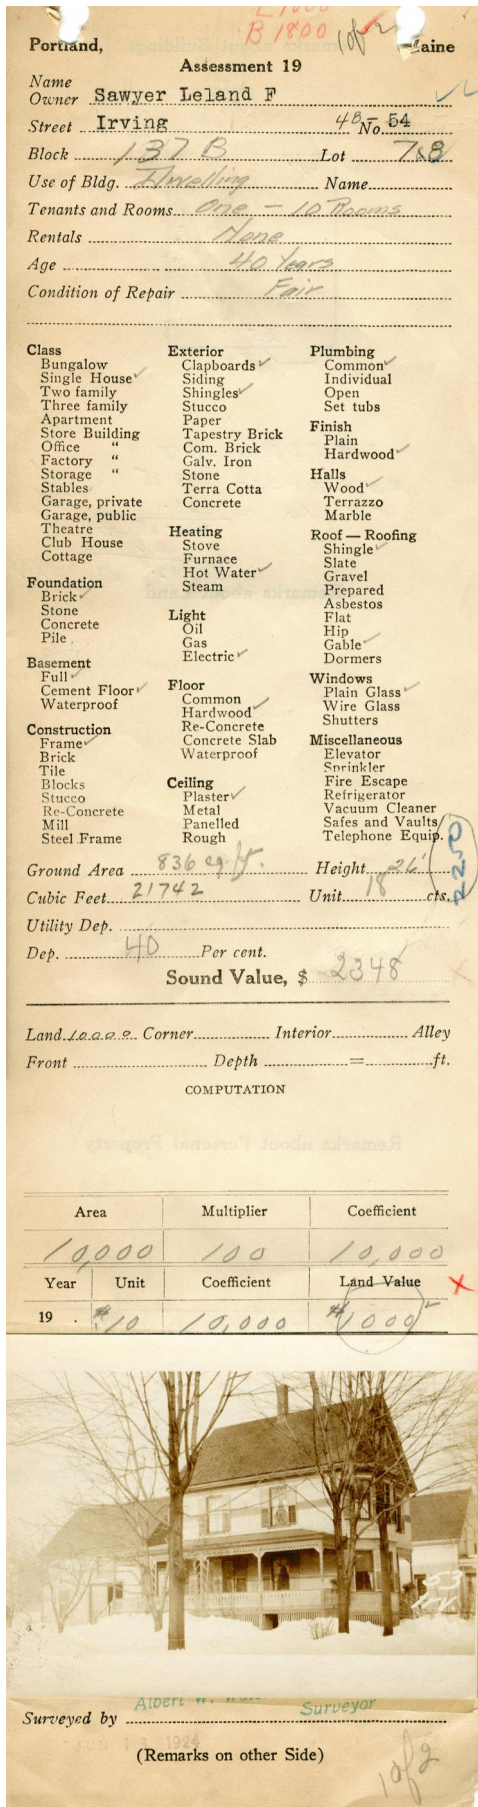 B 1800
1 of 2
Portland, Maine
Assessment 19
Name
Owner Sawyer Leland F
Street Irving 48- No. 54
Block 137 B Lot 7 & 8
Use of Bldg. Dwelling Name
Tenants and Rooms One - 10 Rooms
Rentals None
Age 40 Years
Condition of Repair Fair
Class
Bungalow
Single House ✓
Two family
Three family
Apartment
Store Building
Office "
Factory "
Storage "
Stables
Garage, private
Garage, public
Theatre
Club House
Cottage
Foundation
Brick ✓
Stone
Concrete
Pile
Basement
Full ✓
Cement Floor ✓
Waterproof
Construction
Frame ✓
Brick
Tile
Blocks
Stucco
Re-Concrete
Mill
Steel Frame
Exterior
Clapboards ✓
Siding
Shingles ✓
Stucco
Paper
Tapestry Brick
Com. Brick
Galv. Iron
Stone
Terra Cotta
Concrete
Heating
Stove
Furnace
Hot Water ✓
Steam
Light
Oil
Gas
Electric ✓
Floor
Common
Hardwood ✓
Re-Concrete
Concrete Slab
Waterproof
Ceiling
Plaster ✓
Metal
Panelled
Rough
Plumbing
Common ✓
Individual
Open
Set tubs
Finish
Plain
Hardwood ✓
Halls
Wood ✓
Terrazzo
Marble
Roof — Roofing
Shingle ✓
Slate
Gravel
Prepared
Asbestos
Flat
Hip
Gable ✓
Dormers
Windows
Plain Glass ✓
Wire Glass
Shutters
Miscellaneous
Elevator
Sprinkler
Fire Escape
Refrigerator
Vacuum Cleaner
Safes and Vaults
Telephone Equip.
2250
Ground Area 836 sq ft. Height 26'
Cubic Feet 21742 Unit 18 cts.
Utility Dep.
Dep. 40 Per cent.
Sound Value, $ 2348
Land 10000 Corner Interior Alley
Front Depth = ft.
COMPUTATION
Area Multiplier Coefficient
10,000 100 10,000
Year Unit Coefficient Land Value
19 . $10 10,000 $1000
53
Albert W. Surveyor
Surveyed by
1924
(Remarks on other Side)
1 of 2